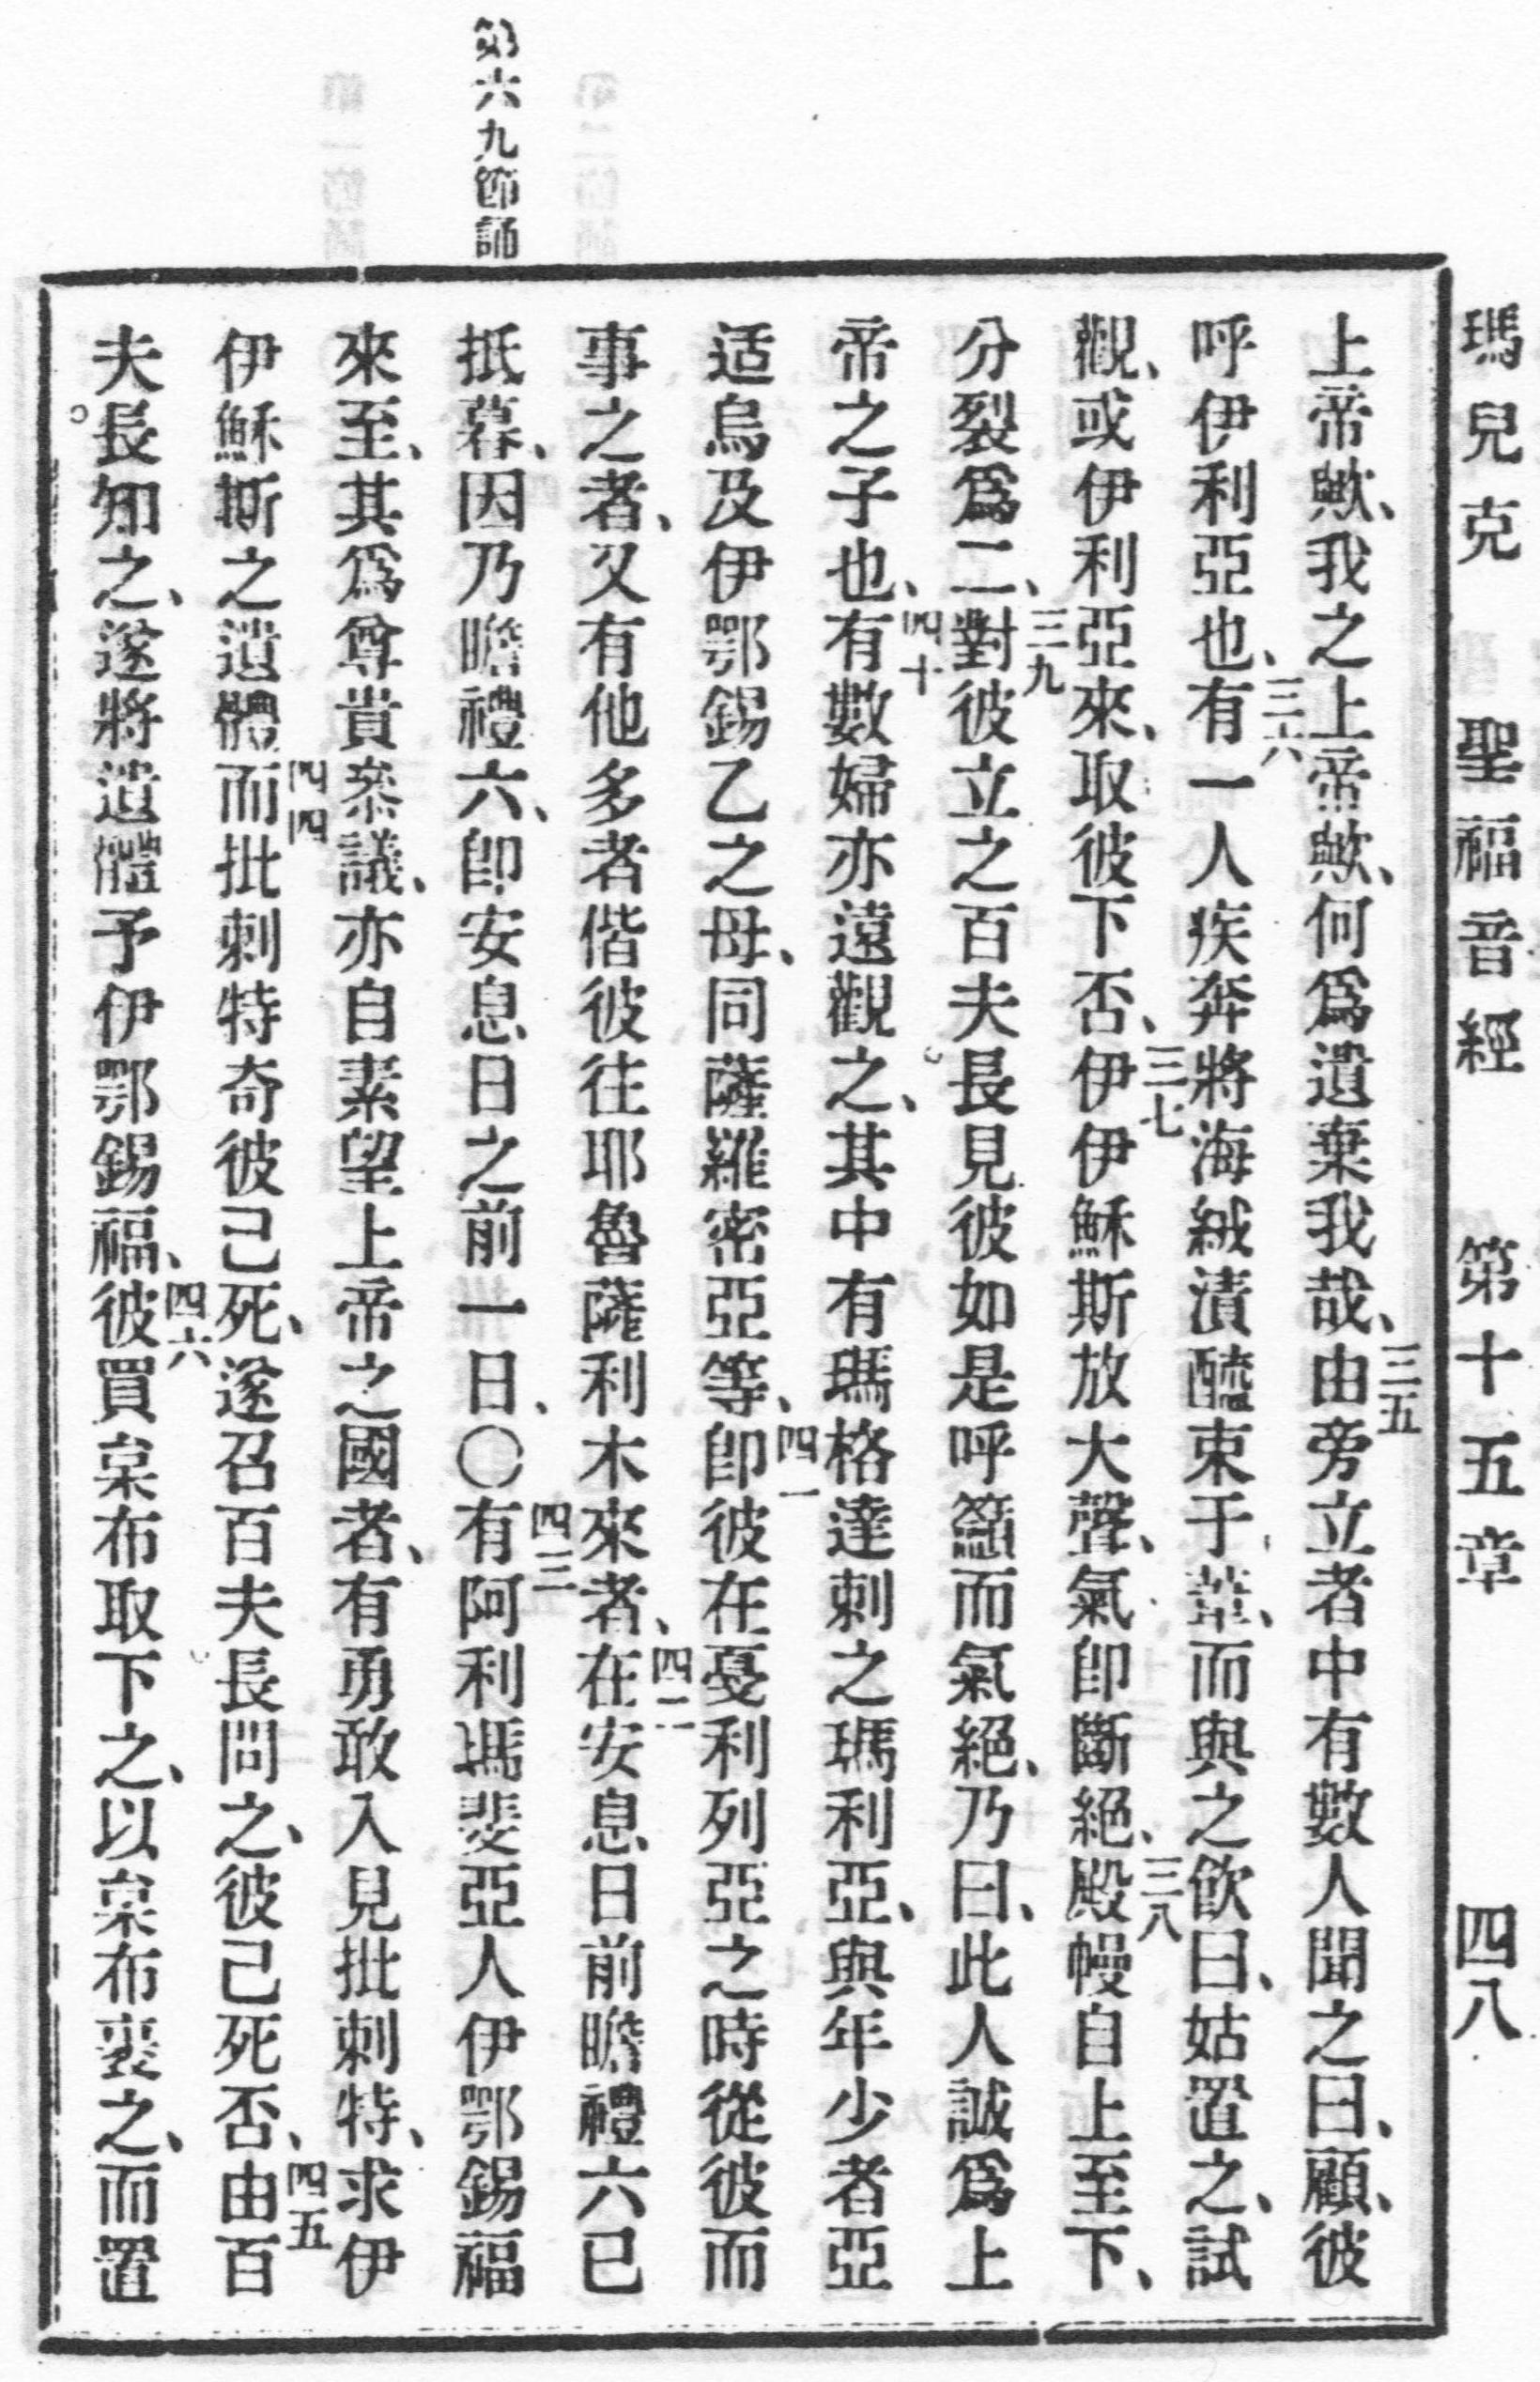 瑪兒克 聖福音經 第十五章 四八
上帝歟、我之上帝歟、何爲遺棄我哉、三五由旁立者中有數人聞之曰、顧、彼
呼伊利亞也、三六有一人疾奔將海絨漬醯束于葦、而與之飲曰、姑置之、試
觀、或伊利亞來、取彼下否、三七伊伊穌斯放大聲、氣卽斷絕、三八殿幔自上至下、
分裂爲二、三九對彼立之百夫長見彼如是呼籲而氣絕、乃曰、此人誠爲上
帝之子也、四十有數婦亦遠觀之、其中有瑪格達剌之瑪利亞、與年少者亞
适烏及伊鄂錫乙之母、同薩羅密亞等、四一卽彼在戞利列亞之時從彼而
事之者、又有他多者偕彼往耶魯薩利木來者、四二在安息日前瞻禮六已
第六九節誦
抵暮、因乃瞻禮六、卽安息日之前一日、〇四三有阿利瑪斐亞人伊鄂錫福
來至、其爲尊貴叅議、亦自素望上帝之國者、有勇敢入見批剌特、求伊
伊穌斯之遺體四四而批剌特奇彼已死、遂召百夫長問之、彼已死否、四五由百
夫長知之、遂將遺體予伊鄂錫福、四六彼買枲布取下之、以枲布裹之、而置